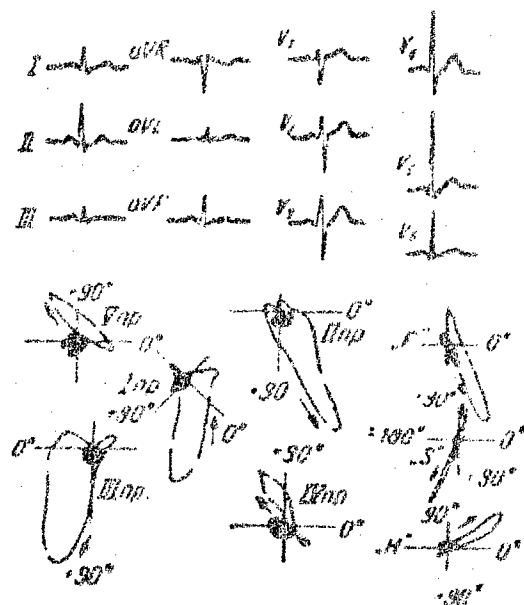 I aVR V₁ V₄
II aVL V₂
V₅
III aVF V₃ V₆
-90°
V пр 0°
I пр
-90°
0°
0°
III пр.
+90°
0°
II пр
+90
+90°
IV пр
0°
„F"
0°
+90°
±180°
„S"
+90°
90°
„H"
0°
+90°